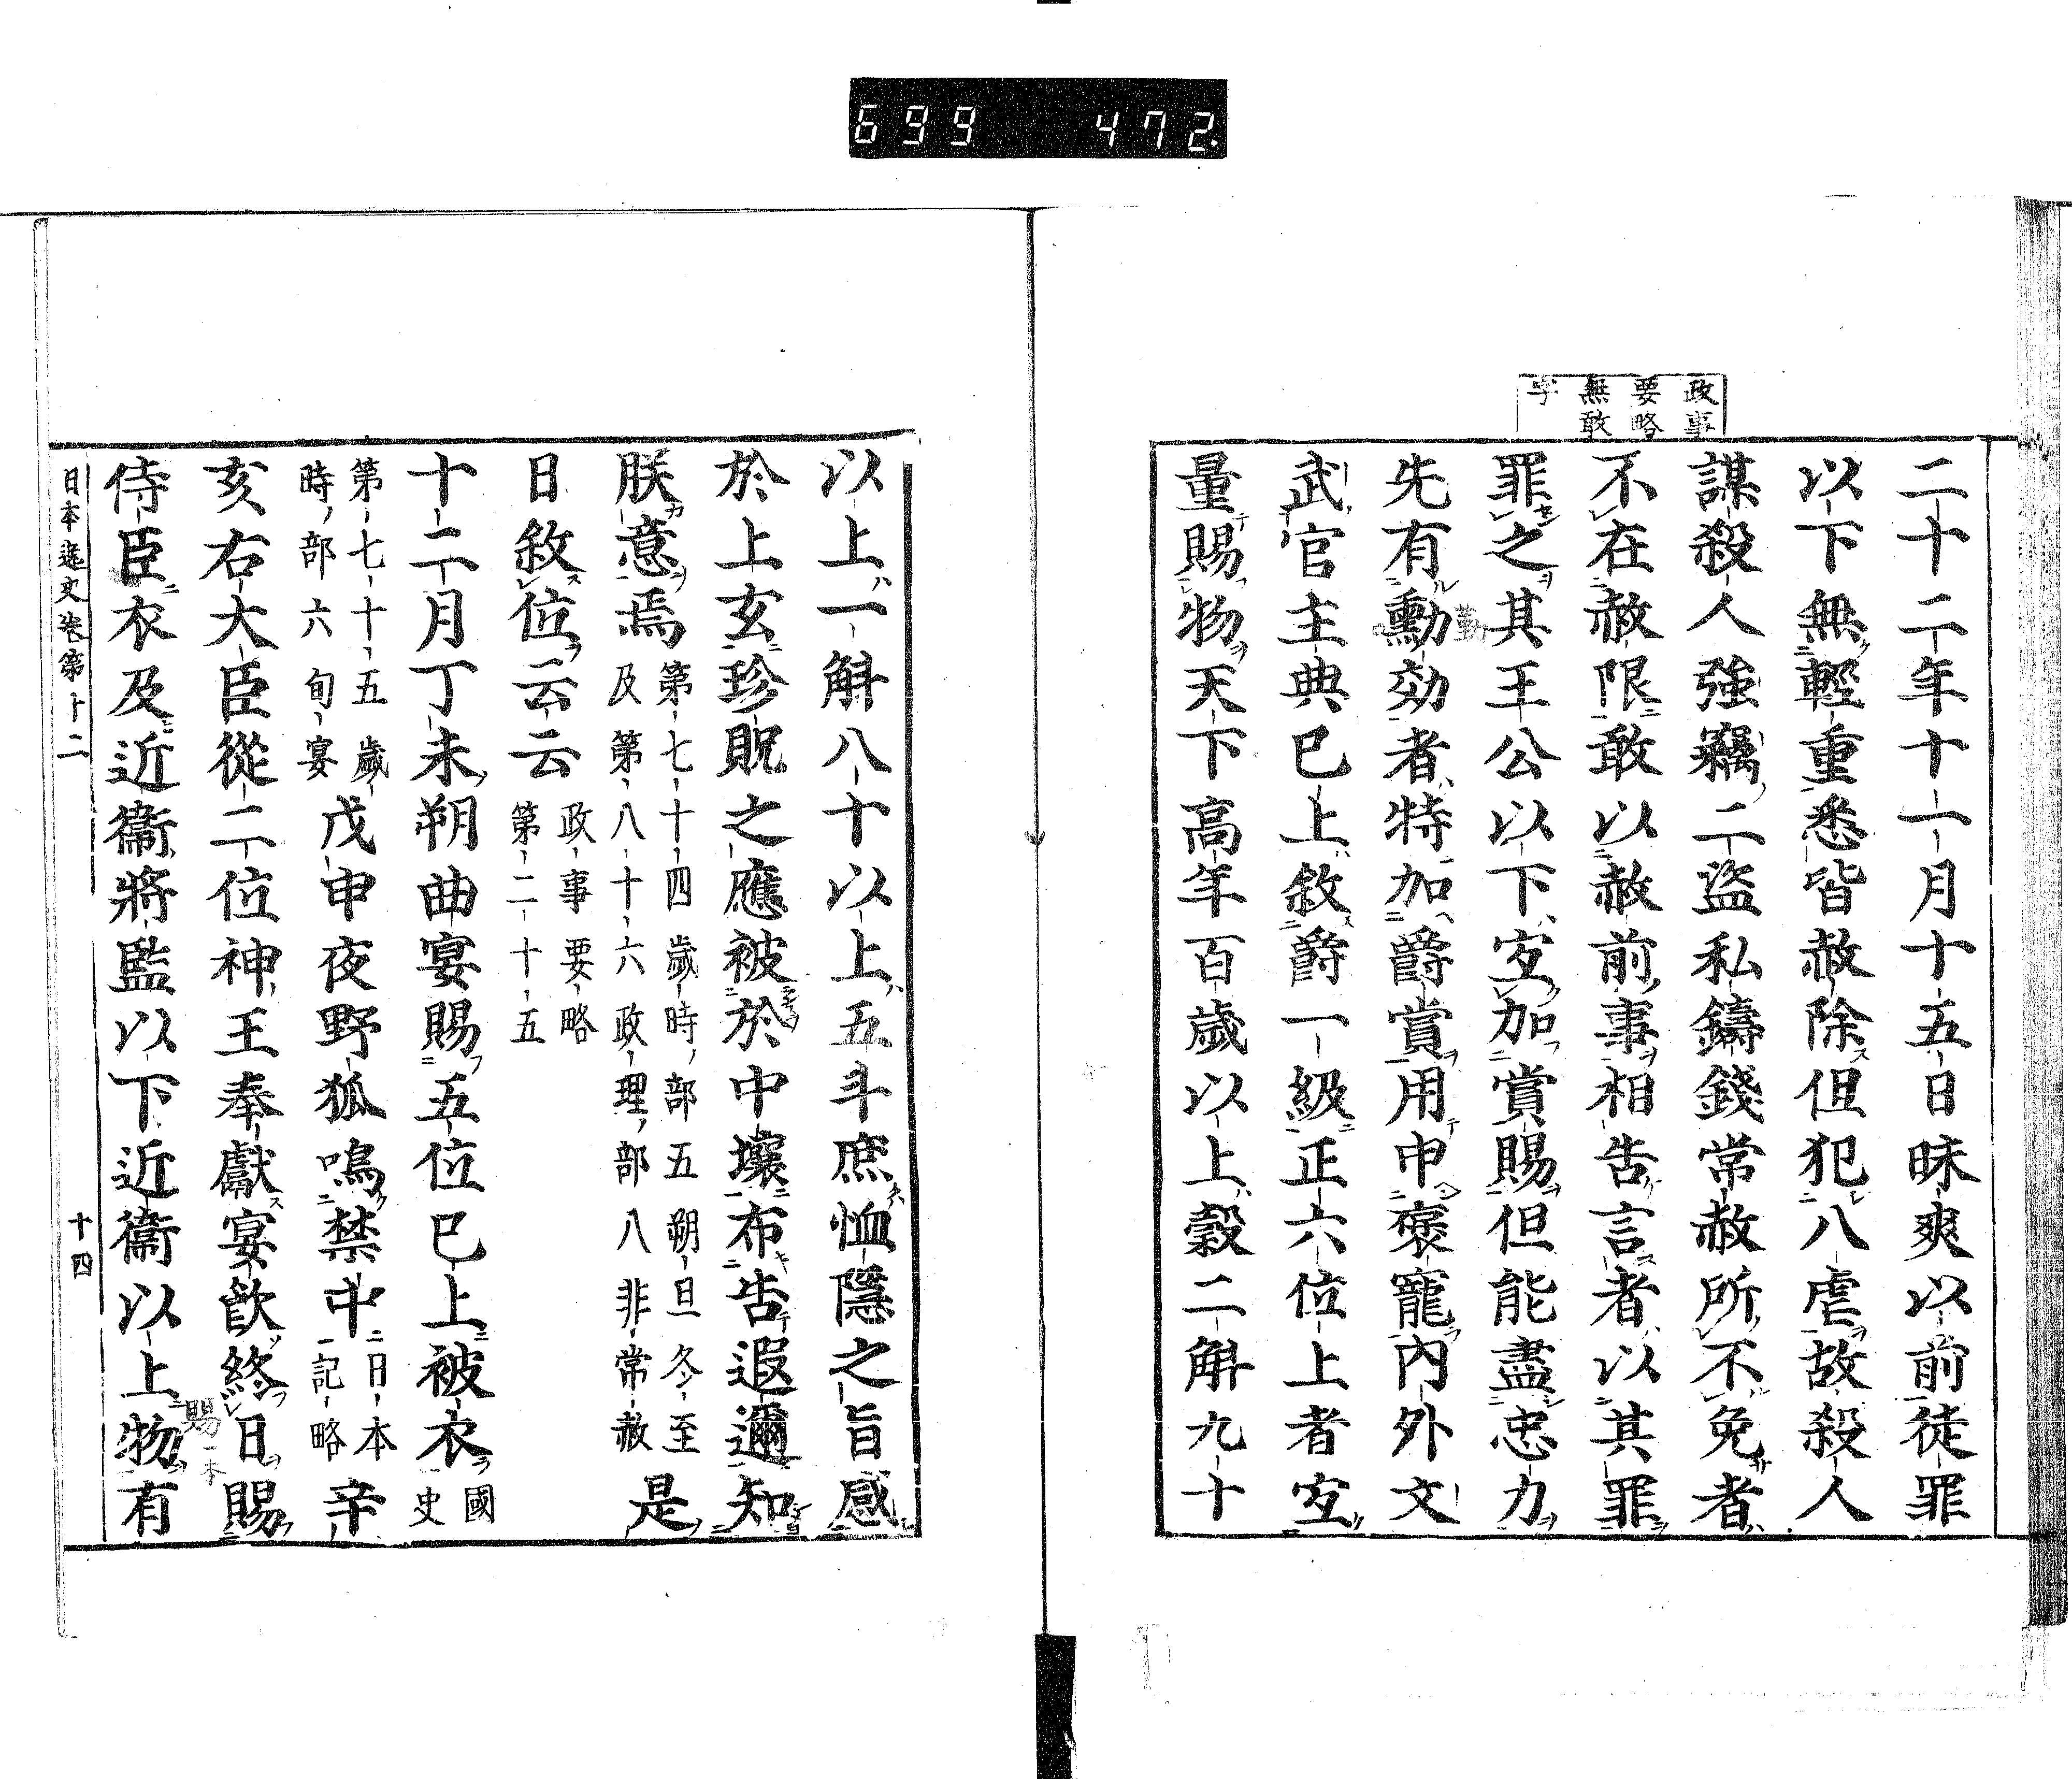 699 472.
政事
要略
無敢
字
二十二年十一月十五日昧爽以前徒罪
以下無輕重悉皆赦除但犯八虐故殺人
謀殺人強竊二盜私鑄錢常赦所不免者
不在赦限敢以赦前事相告言者以其罪
罪之其王公以下宜加賞賜但能盡忠力
先有勳効者特加爵賞用申褒寵內外文
勤
武官主典已上敘爵一級正六位上者宜
量賜物天下高年百歲以上穀二斛九十
以上一斛八十以上五斗庶恤隱之旨感
於上玄珍貺之應被於中壤布告遐邇知
朕意焉第七十四歲時部五朔旦冬至
及第八十六政理部八非常赦是
日敘位云云政事要略
第二十五
十二月丁未朔曲宴賜五位已上被衣國
史
第七十五歲
時部六旬宴戊申夜野狐鳴禁中日本
記略辛
亥右大臣從二位神王奉獻宴飮終日賜
賜一本
侍臣衣及近衞將監以下近衞以上物有
日本逸史卷第十二
十四